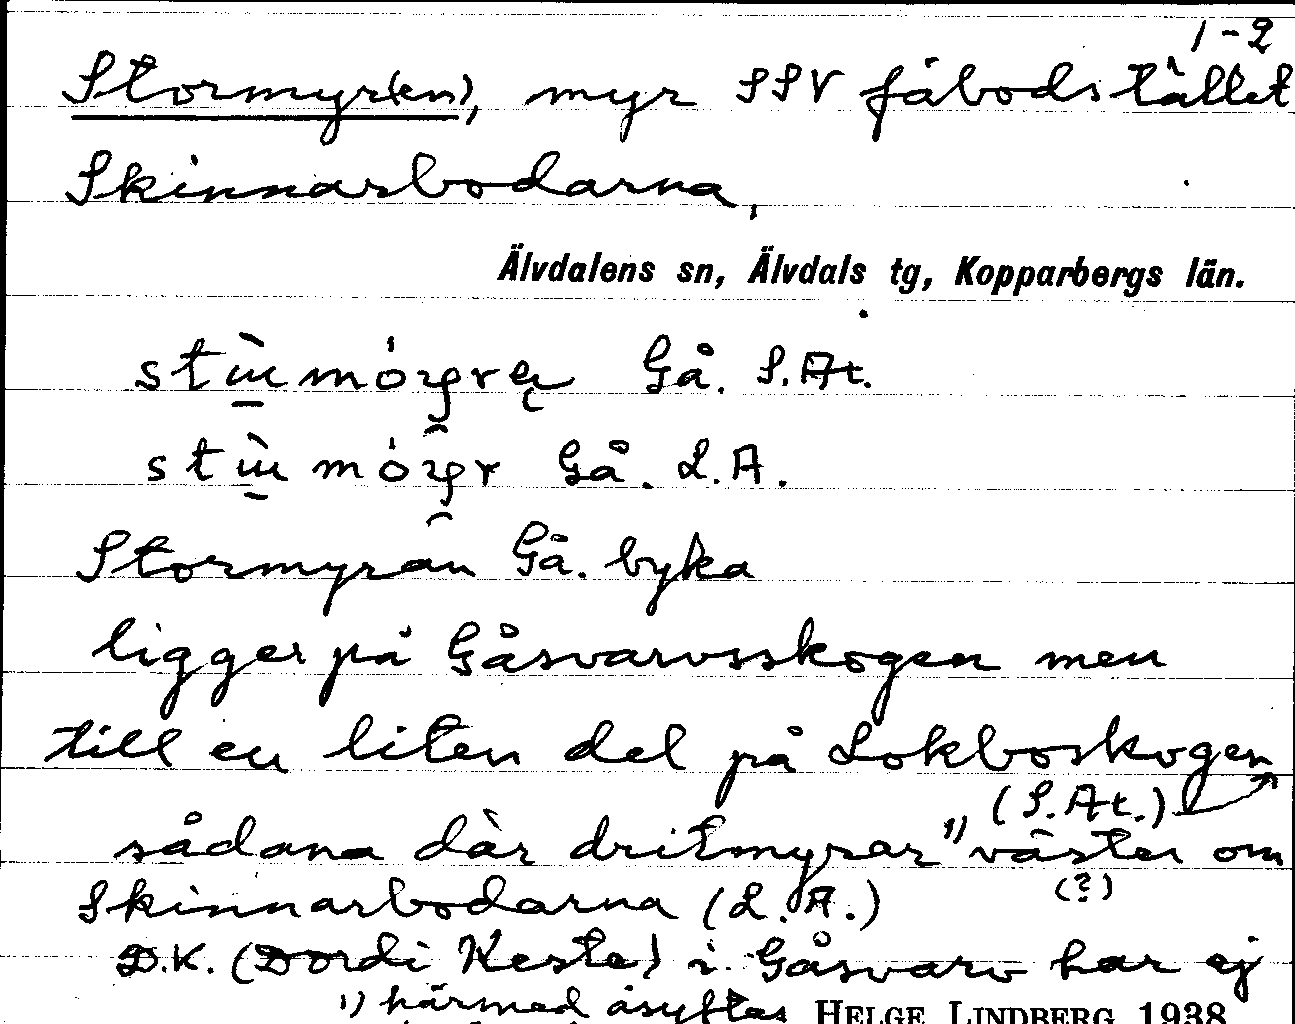 1-2
Stormyr(en), myr SSV fäbodstället
Skinnarbodarna,
Älvdalens sn, Älvdals tg, Kopparbergs län.
Gå. S.At.
Gå. L.A.
Stormyran Gå. byka
ligger på Gåsvarvsskogen men
till en liten del på Lokboskogen
(S.At.)
sådana där dritmyrar" 1) väster om
(?)
Skinnarbodarna (L.A.)
D.K. (Dordi Kesta) i Gåsvarv har ej
1) härmed åsyftas HELGE LINDBERG 1938